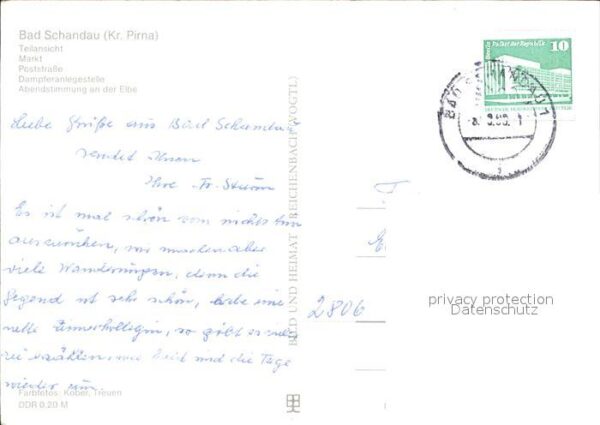 Bad Schandau (Kr. Pirna)
Teilansicht
Markt
Poststraße
Dampferanlegestelle
Abendstimmung an der Elbe
Liebe Grüße aus Bad Schandau
sendet Ihnen
Ihre Fr. Sturm
Es ist mal schön vom nichts tun
auszuruhen, wir machen aber
viele Wanderungen, denn die
Gegend ist sehr schön, habe eine
nette Zimmerkollegin, so gibt es viel
zu erzählen, und die Tage
wieder um.
Farbfotos: Kober, Treuen
DDR 0.20 M
BILD UND HEIMAT REICHENBACH (VOGTL)
Berlin Palast der Republik
10
2806
privacy protection
Datenschutz